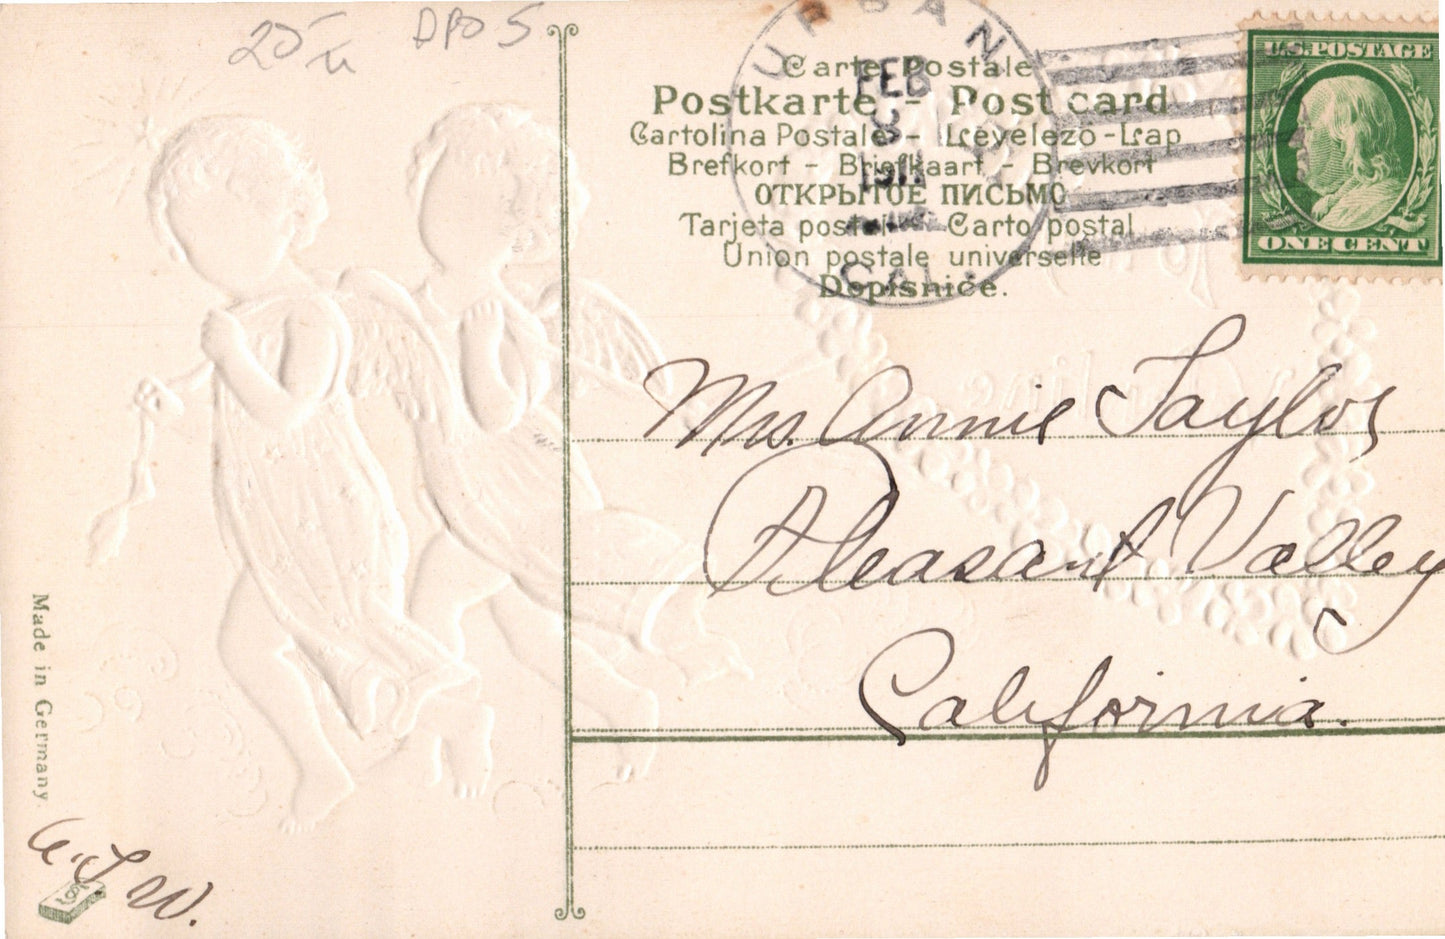 DPO 5
Carte Postale
Postkarte - Post card
Cartolina Postale - Levelezö-Lap
Brefkort - Briefkaart - Brevkort
ОТКРЫТОЕ ПИСЬМО
Tarjeta postal - Carto postal
Union postale universelle
Dopisnice.
URBAN
FEB
1911
CAL.
U.S. POSTAGE
ONE CENT
Mrs. Annie Taylor
Pleasant Valley
California.
Made in Germany.
W.